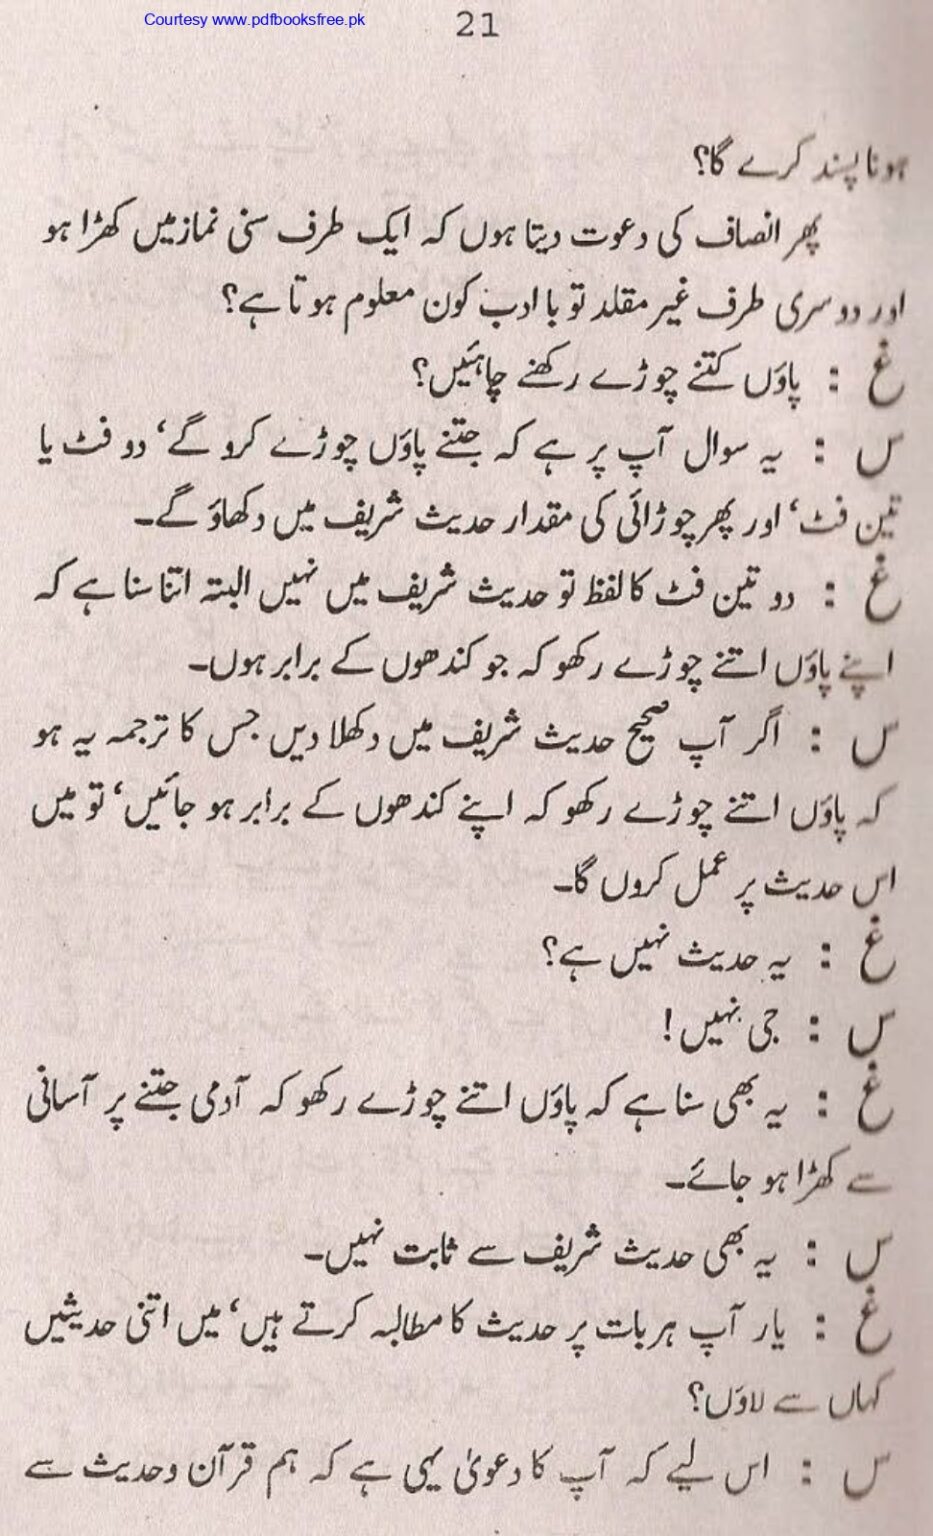 Courtesy www.pdfbooksfree.pk
21
ہونا پسند کرے گا؟
پھر انصاف کی دعوت دیتا ہوں کہ ایک طرف سنی نماز میں کھڑا ہو
اور دوسری طرف غیر مقلد تو با ادب کون معلوم ہوتا ہے؟
غ : پاؤں کتنے چوڑے رکھنے چاہئیں؟
س : یہ سوال آپ پر ہے کہ جتنے پاؤں چوڑے کرو گے‘ دو فٹ یا
تین فٹ‘ اور پھر چوڑائی کی مقدار حدیث شریف میں دکھاؤ گے۔
غ : دو تین فٹ کا لفظ تو حدیث شریف میں نہیں البتہ اتنا سنا ہے کہ
اپنے پاؤں اتنے چوڑے رکھو کہ جو کندھوں کے برابر ہوں۔
س : اگر آپ صحیح حدیث شریف میں دکھلا دیں جس کا ترجمہ یہ ہو
کہ پاؤں اتنے چوڑے رکھو کہ اپنے کندھوں کے برابر ہو جائیں‘ تو میں
اس حدیث پر عمل کروں گا۔
غ : یہ حدیث نہیں ہے؟
س : جی نہیں!
غ : یہ بھی سنا ہے کہ پاؤں اتنے چوڑے رکھو کہ آدمی جتنے پر آسانی
سے کھڑا ہو جائے۔
س : یہ بھی حدیث شریف سے ثابت نہیں۔
غ : یار آپ ہر بات پر حدیث کا مطالبہ کرتے ہیں‘ میں اتنی حدیثیں
کہاں سے لاؤں؟
س : اس لیے کہ آپ کا دعویٰ یہی ہے کہ ہم قرآن وحدیث سے